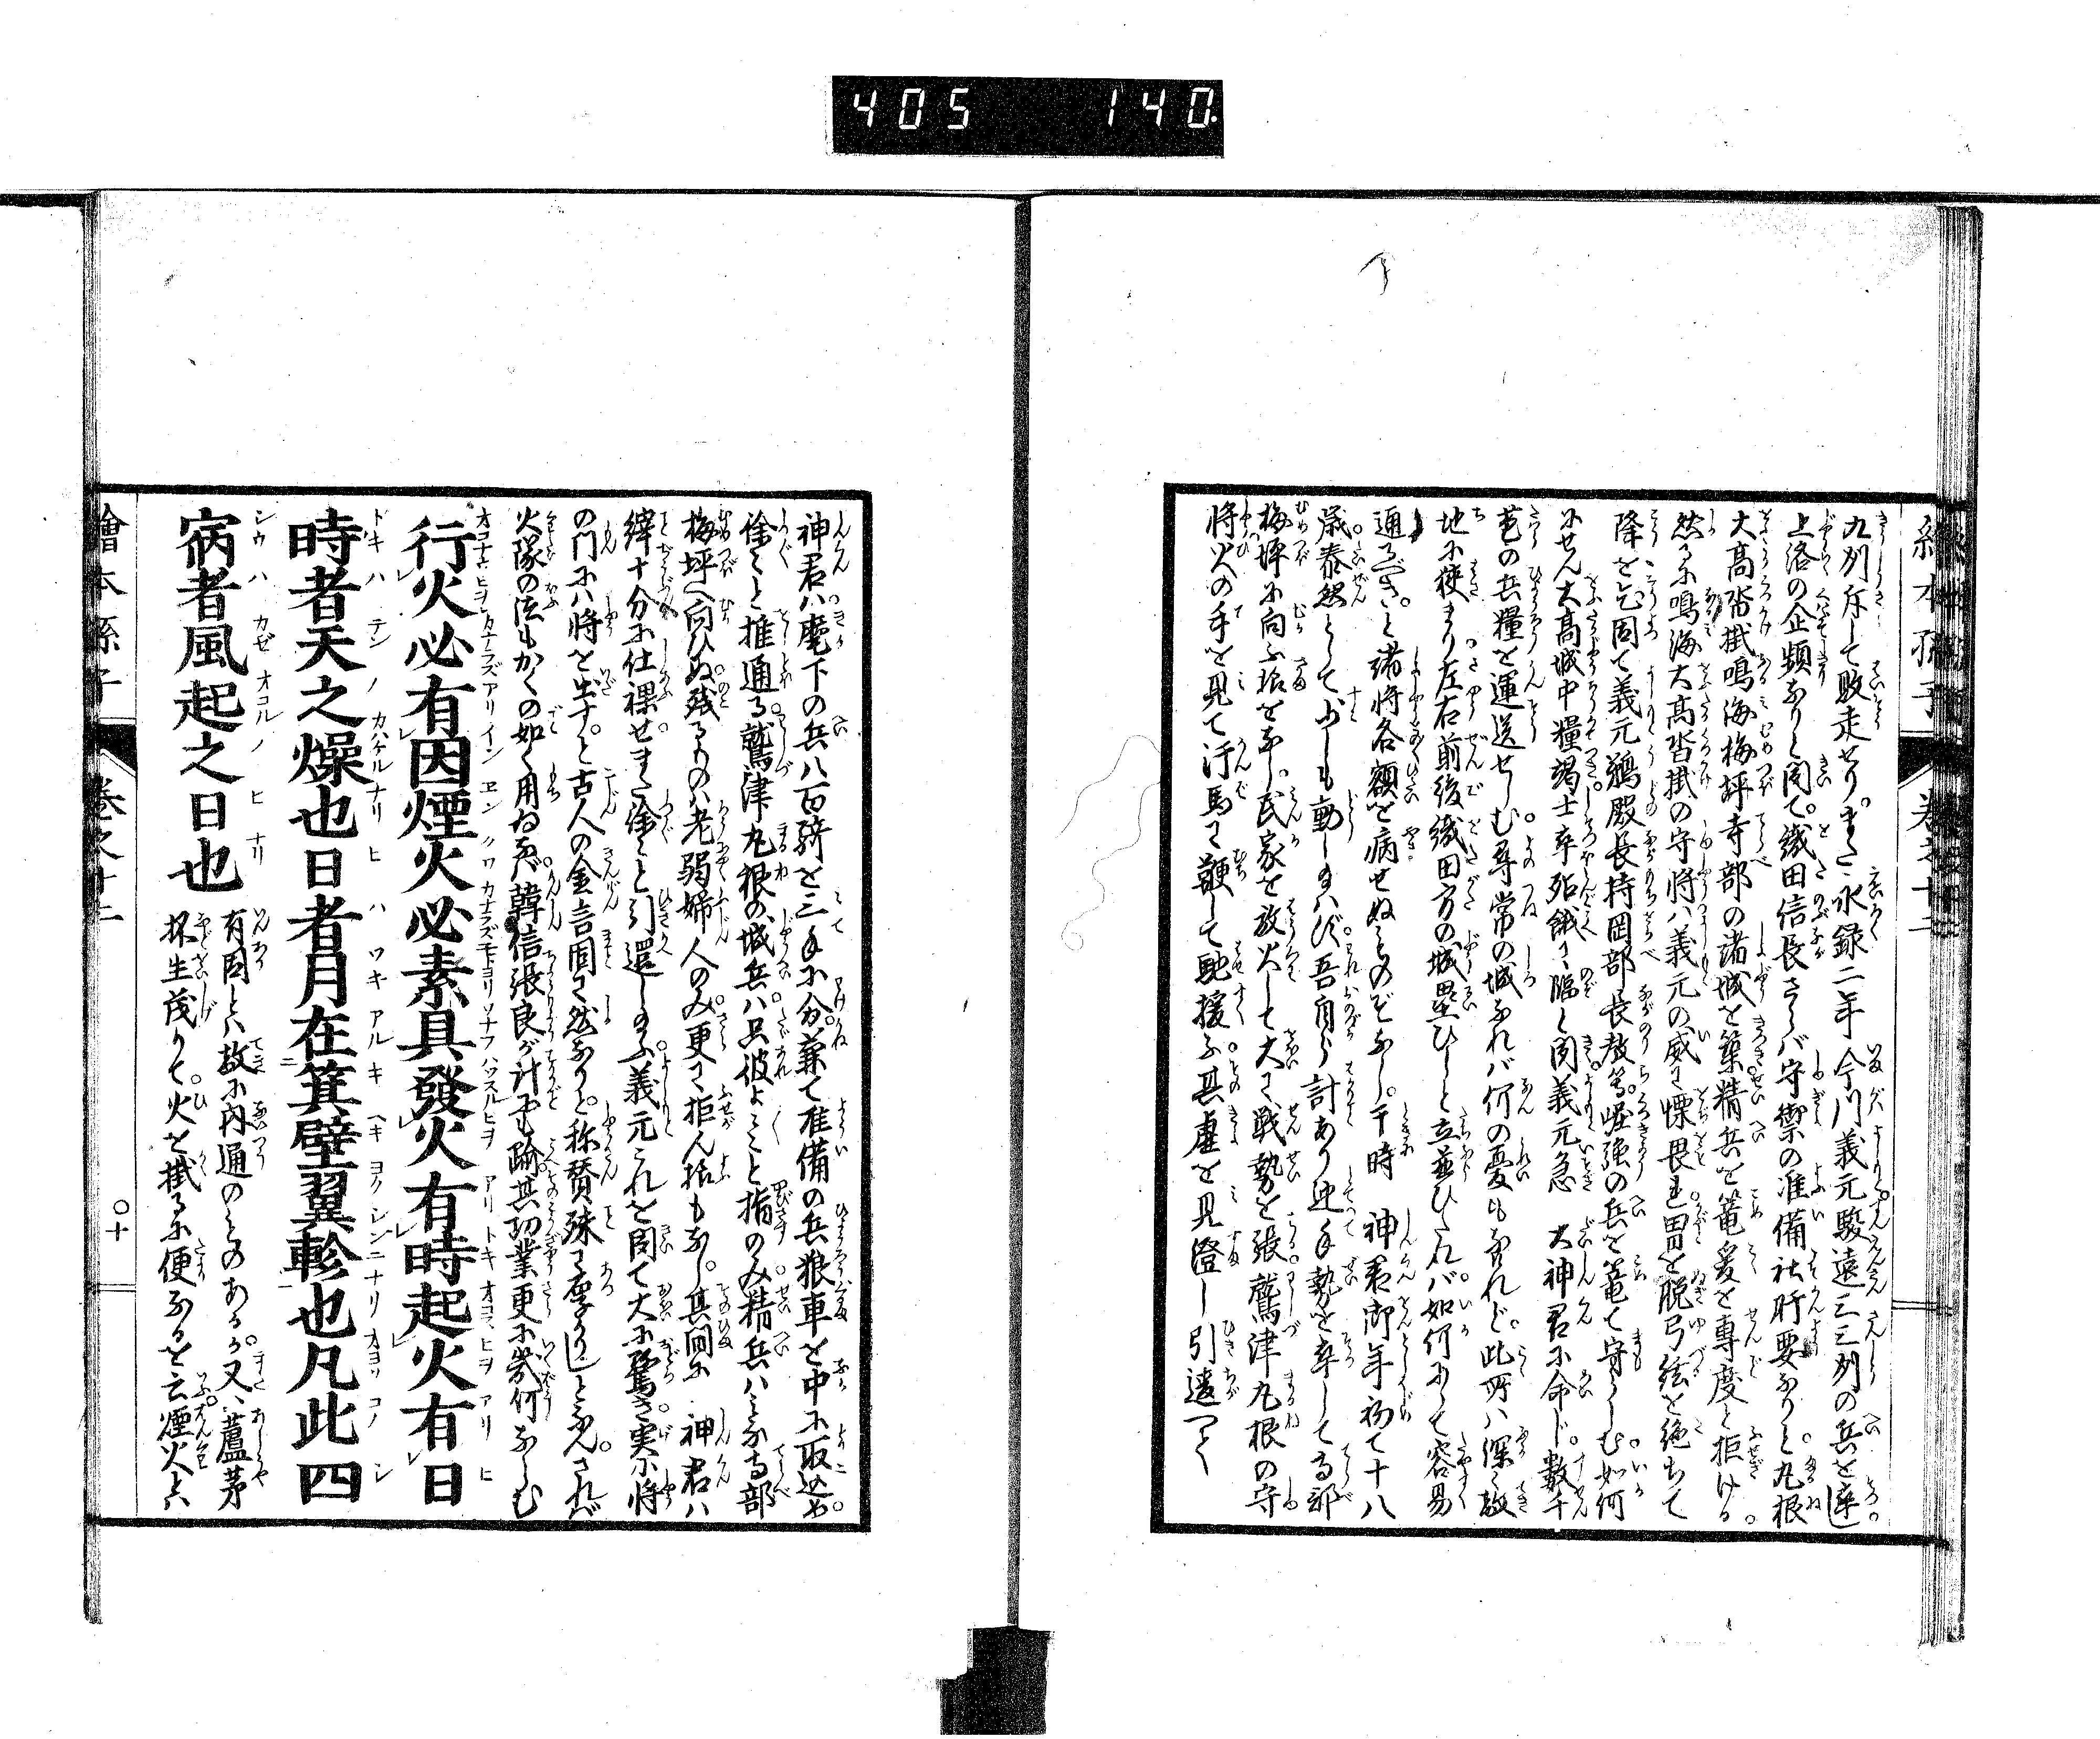 405 140
九列斥して敗走せり。また永録二年今川義元駿遠三三列の兵を率
上洛の企頻なりと聞て。織田信長さらバ守禦の准備社肝要なりと。丸根
大高沓掛鳴海梅坪寺部の諸城を築。精兵を篭爰を專度と拒ける。
然るに鳴海大高沓掛の守将ハ義元の威に慄畏れ。冑を脱弓弦を絶ちて
降を乞。因て義元鵜殿長持岡部長教等。崛強の兵を篭て守らしむ。如何
にせん大高城中糧竭士卒殆餓に臨と聞。義元急 大神君に命じ。數千
苞の兵糧を運送せしむ。尋常の城なれバ何の憂もなけれど。此所ハ深く敵
地に狭まり。左右前後織田方の城塁ひしと立並びたれバ。如何にして容易
通るべき。と諸将各額を病せぬものぞなし。于時 神君御年初て十八
歳。泰然として少しも動じ給ハず。吾自ら計あり迚手勢を率して寺部
梅坪に向ふ振をなし。民家を放火して大に戦勢を張。鷲津丸根の守
将火の手を見て汗馬に鞭して馳援ふ。其虚を見澄し引違へて
神君ハ麾下の兵八百騎を三手に分。兼て准備の兵粮車を中に取込め。
徐々と推通る。鷲津丸根の城兵ハ只彼よ々々と指のみ。精兵ハみな寺部
梅坪へ向ひぬ。残るものハ老弱婦人のみ。更に拒ん振もなし。其間に 神君ハ
緯十分に仕課せ。また徐々と引還し給ふ。義元これを聞て大に驚き。実に将
の門にハ将を出す。と古人の金言固に然なりと。称賛殊に厚かりしと見ん。されバ
火隊の法もかくの如く用ゐなバ。韓信張良が計にも踰。其功業更に幾何ならむ
行火必有因煙火必素具發火有時起火有日
時者天之燥也日者月在箕壁翼軫也凡此四
宿者風起之日也
有因とハ敵に内通のものあるか。又ハ蘆茅
抔生茂りて。火を掛るに便なるを云。煙火とハ
繪本孫子 巻之十二 〇十